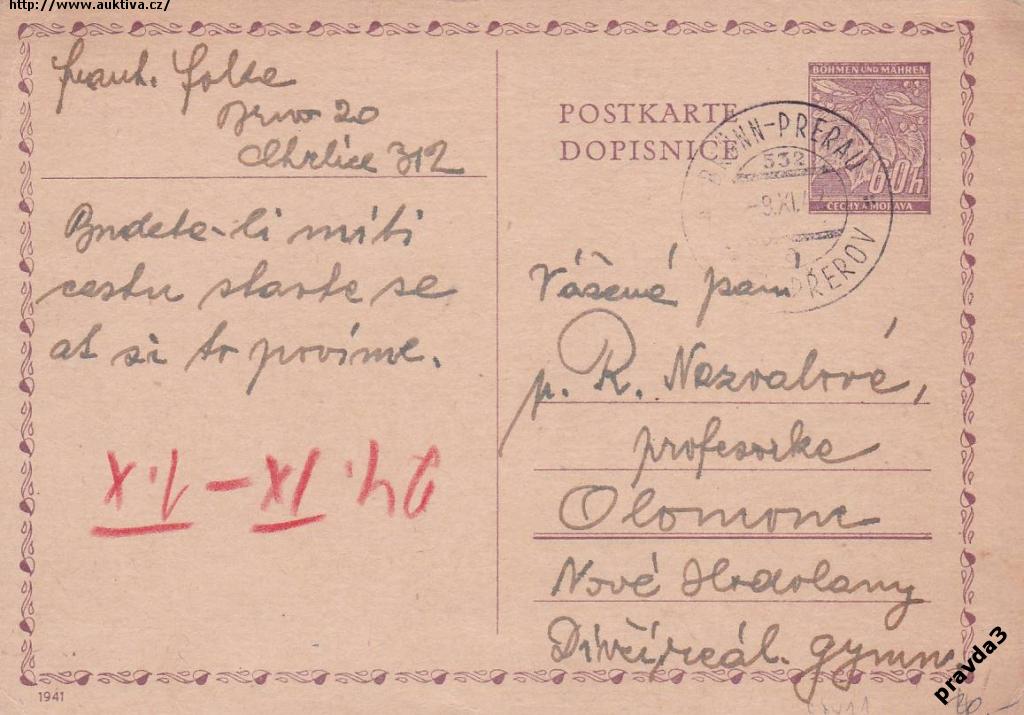 http://www.auktiva.cz/
Frant. Polte
Brno 20
Chrlice 312
Budete-li míti
cestu stavte se
ať si to povíme.
POSTKARTE
DOPISNICE
BÖHMEN UND MÄHREN
60h
ČECHY A MORAVA
BRÜNN-PRERAU
532
-9.XI.
PŘEROV
Vážená paní
p. R. Nezvalové,
profesorka
Olomouc
Nové Hodolany
Dívčí reál. gymn.
1941
pravda3